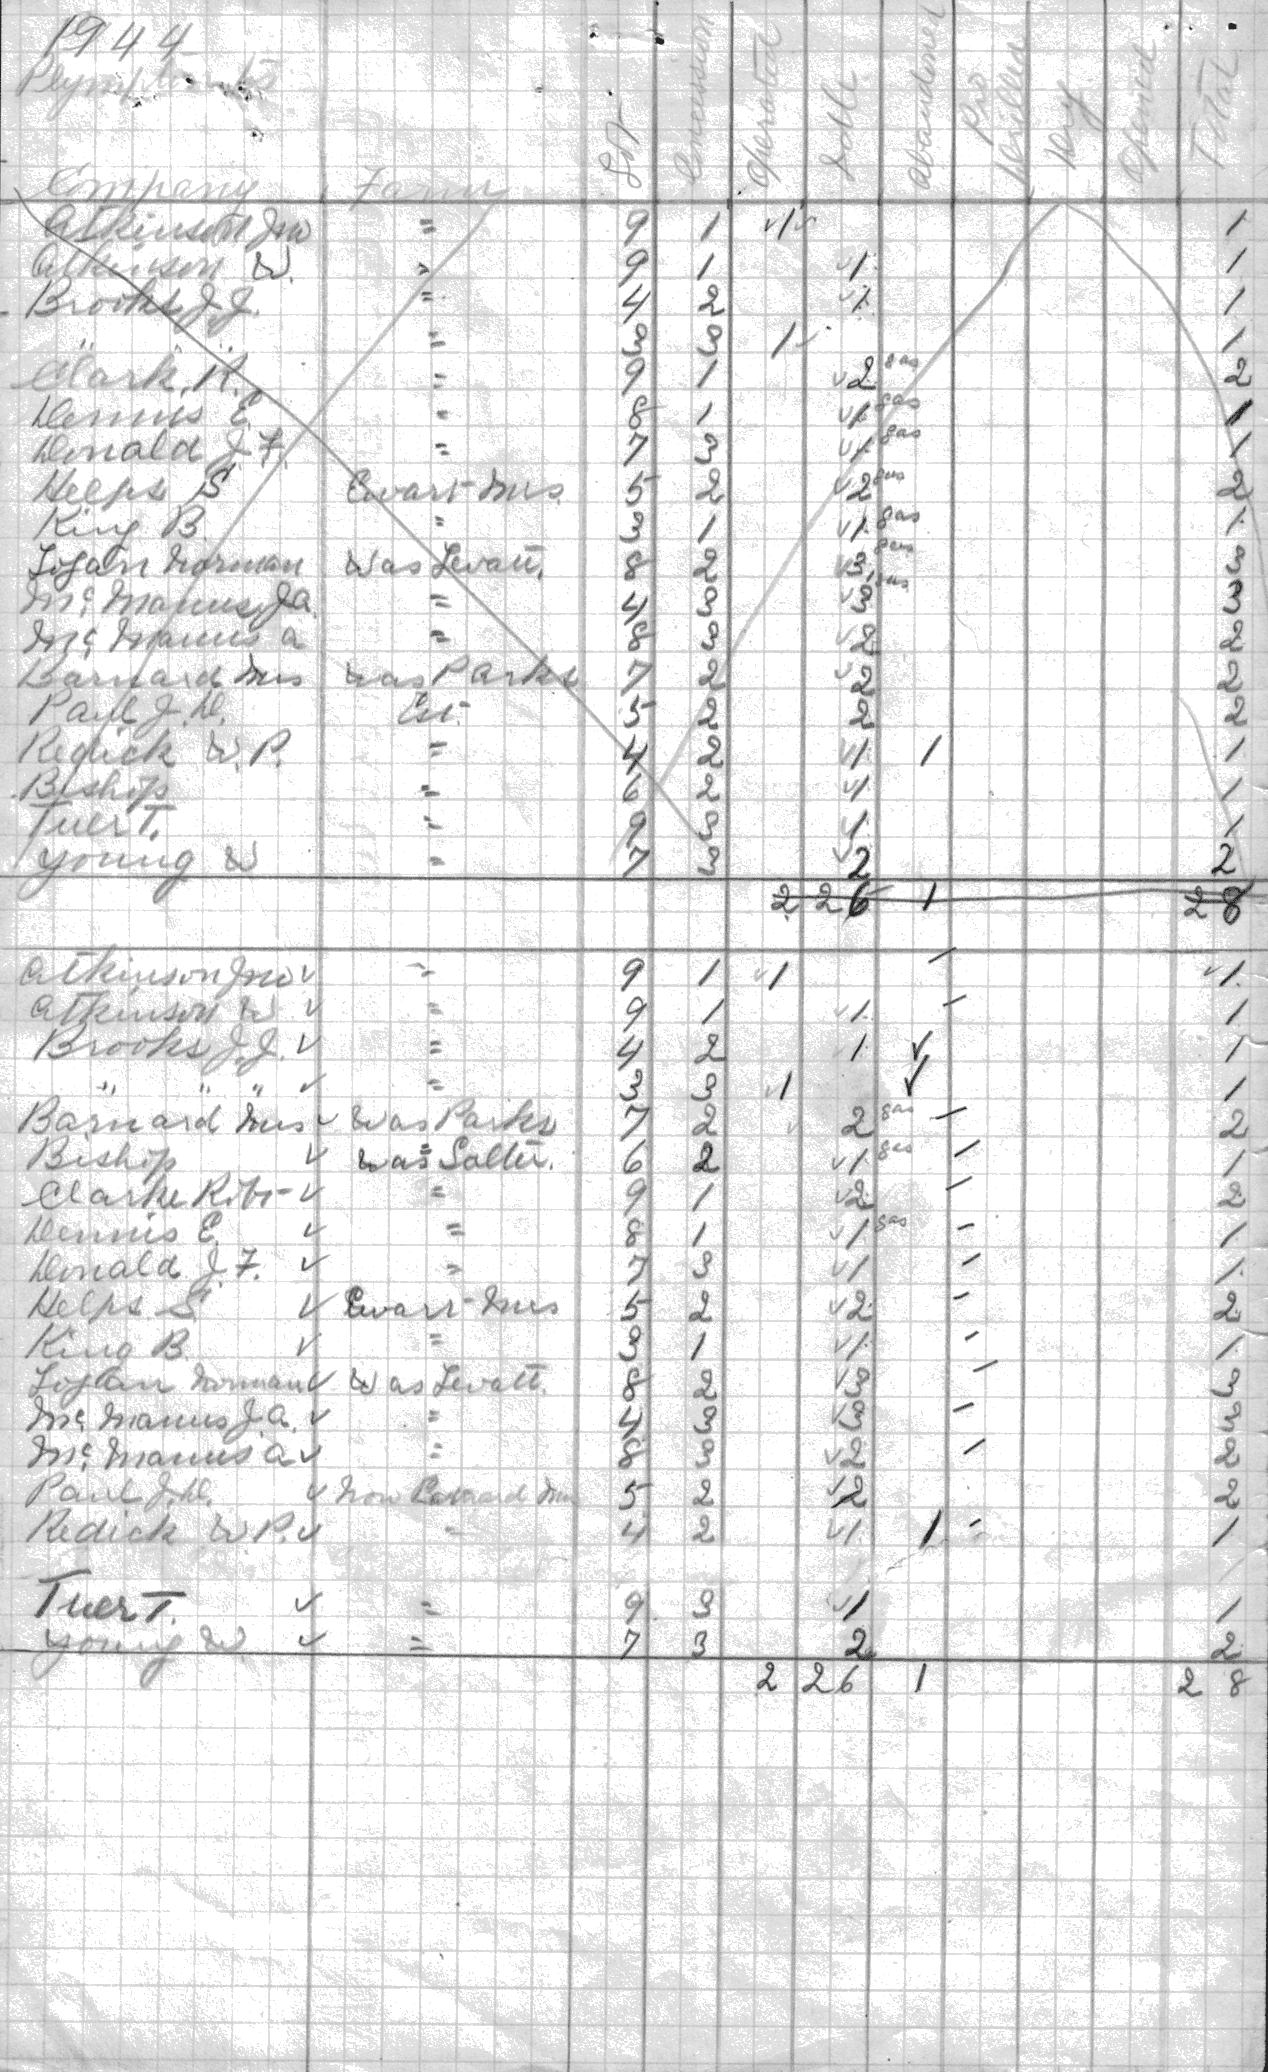 1944
Plympton
Company Farm Lot Concession Operated Idle Abandoned Pro Drilled Dry Opened Total
Atkinson Jno " 9 1 √1√ 1
Atkinson W. " 9 1 √1 1
Brooks J.J. " 4 2 √1 1
" " " " 3 3 1√ 1
Clark, R. " 9 1 √2 gas 2
Dennis E. " 8 1 √1 gas 1
Donald J.F. " 7 3 √1 gas 1
Helps S Ewart Mrs 5 2 √2 gas 2
King B. " 3 1 √1 gas 1
Logan Norman Was Levatt. 8 2 √3 gas 3
Mc Manus J.A. " 4 3 √3 gas 3
Mc Manus A " 8 3 √2 2
Barnard Mrs Was Parks 7 2 √2 2
Paul J.D. Est. 5 2 2 2
Redick W.P. " 4 2 √1 1 1
Bishop " 6 2 √1 1
Tuer T. " 9 3 √1 1
Young W " 7 3 √2 2
2 26 1 28
Atkinson Jno √ " 9 1 √1 – √1
Atkinson W √ " 9 1 √1 – 1
Brooks J.J. √ " 4 2 √1 √ 1
" " " √ " 3 3 √1 √ 1
Barnard Mrs √ Was Parks 7 2 √ 2 gas – 2
Bishop √ was Salter. 6 2 √1 gas – 1
Clarke Robt √ " 9 1 √2 – 2
Dennis E. √ " 8 1 √1 gas – 1
Donald J.F. √ " 7 3 √1 – 1
Helps S √ Ewart Mrs 5 2 √2 – 2
King B. √ " 3 1 √1 – 1
Logan Norman √ Was Levatt. 8 2 √3 – 3
Mc Manus J.A. √ " 4 3 √3 – 3
Mc Manus A √ " 8 3 √2 – 2
Paul J.D. √ Now Barnard Mrs 5 2 √2 2
Redick W.P. √ " 4 2 √1 1 – 1
Tuer T. √ " 9 3 √1 1
Young W. √ " 7 3 2 2
2 26 1 28